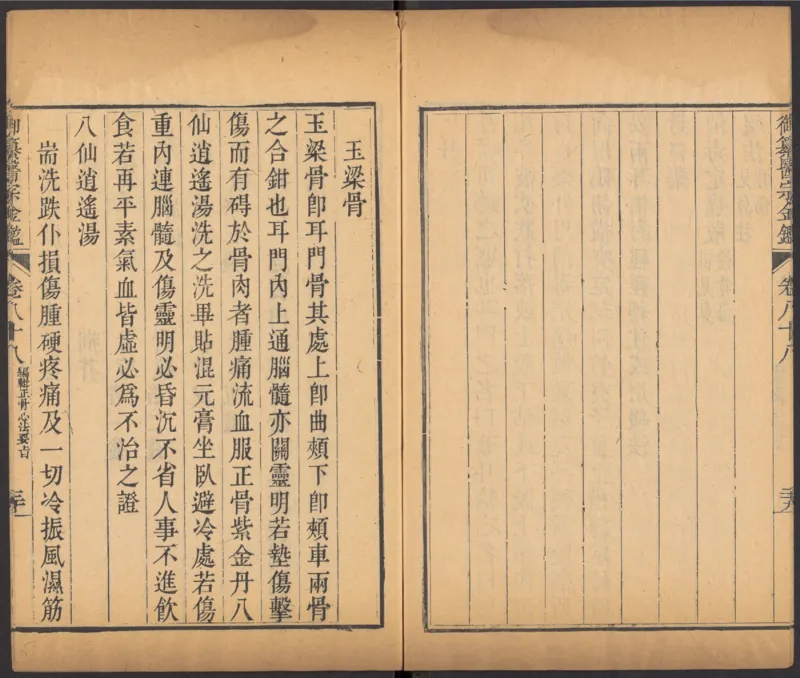 御纂醫宗金鑑
卷八十八
玉梁骨
玉梁骨卽耳門骨其處上卽曲頰下卽頰車兩骨
之合鉗也耳門內上通腦髓亦關靈明若墊傷擊
傷而有碍於骨肉者腫痛流血服正骨紫金丹八
仙逍遙湯洗之洗畢貼混元膏坐臥避冷處若傷
重內連腦髓及傷靈明必昏沉不省人事不進飲
食若再平素氣血皆虛必爲不治之證
八仙逍遙湯
耑洗跌仆損傷腫硬疼痛及一切冷振風濕筋
御纂醫宗金鑑
卷八十八
編輯正骨心法要旨